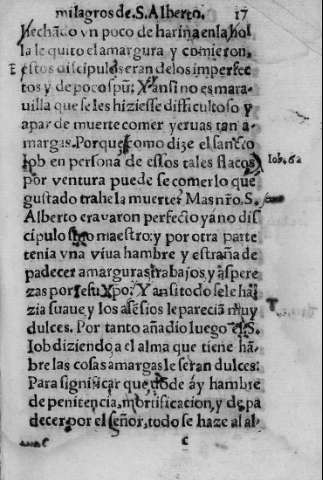 milagros de. S. Alberto. 17
hechado vn poco de harina en la hol
la le quito el amargura y comieron
estos discipulos eran de los imperfec
tos y de poco spũ: Y ansi no es mara-
uilla que se les hiziesse difficultoso y
a par de muerte comer yeruas tan a-
margas. Porque como dize el sancto
Iob en persona de estos tales flacos
por ventura puede se comer lo que
gustado trahe la muerte? Mas nr̃o. S.
Alberto era varon perfecto ya no dis
cipulo sino maestro: y por otra parte
tenia vna viua hambre y estraña de
padecer amarguras, trabajos, y aspere
zas por Iesu Xp̃o: Y ansi todo se le ha
zia suaue, y los asẽsios le pareciã muy
dulces. Por tanto añadio luego el S.
Iob diziendo, a el alma que tiene hã-
bre las cosas amargas le seran dulces:
Para significar que dõde ay hambre
de penitencia, mortificacion, y de pa
decer por el señor, todo se haze al al-
c
Iob. 6.